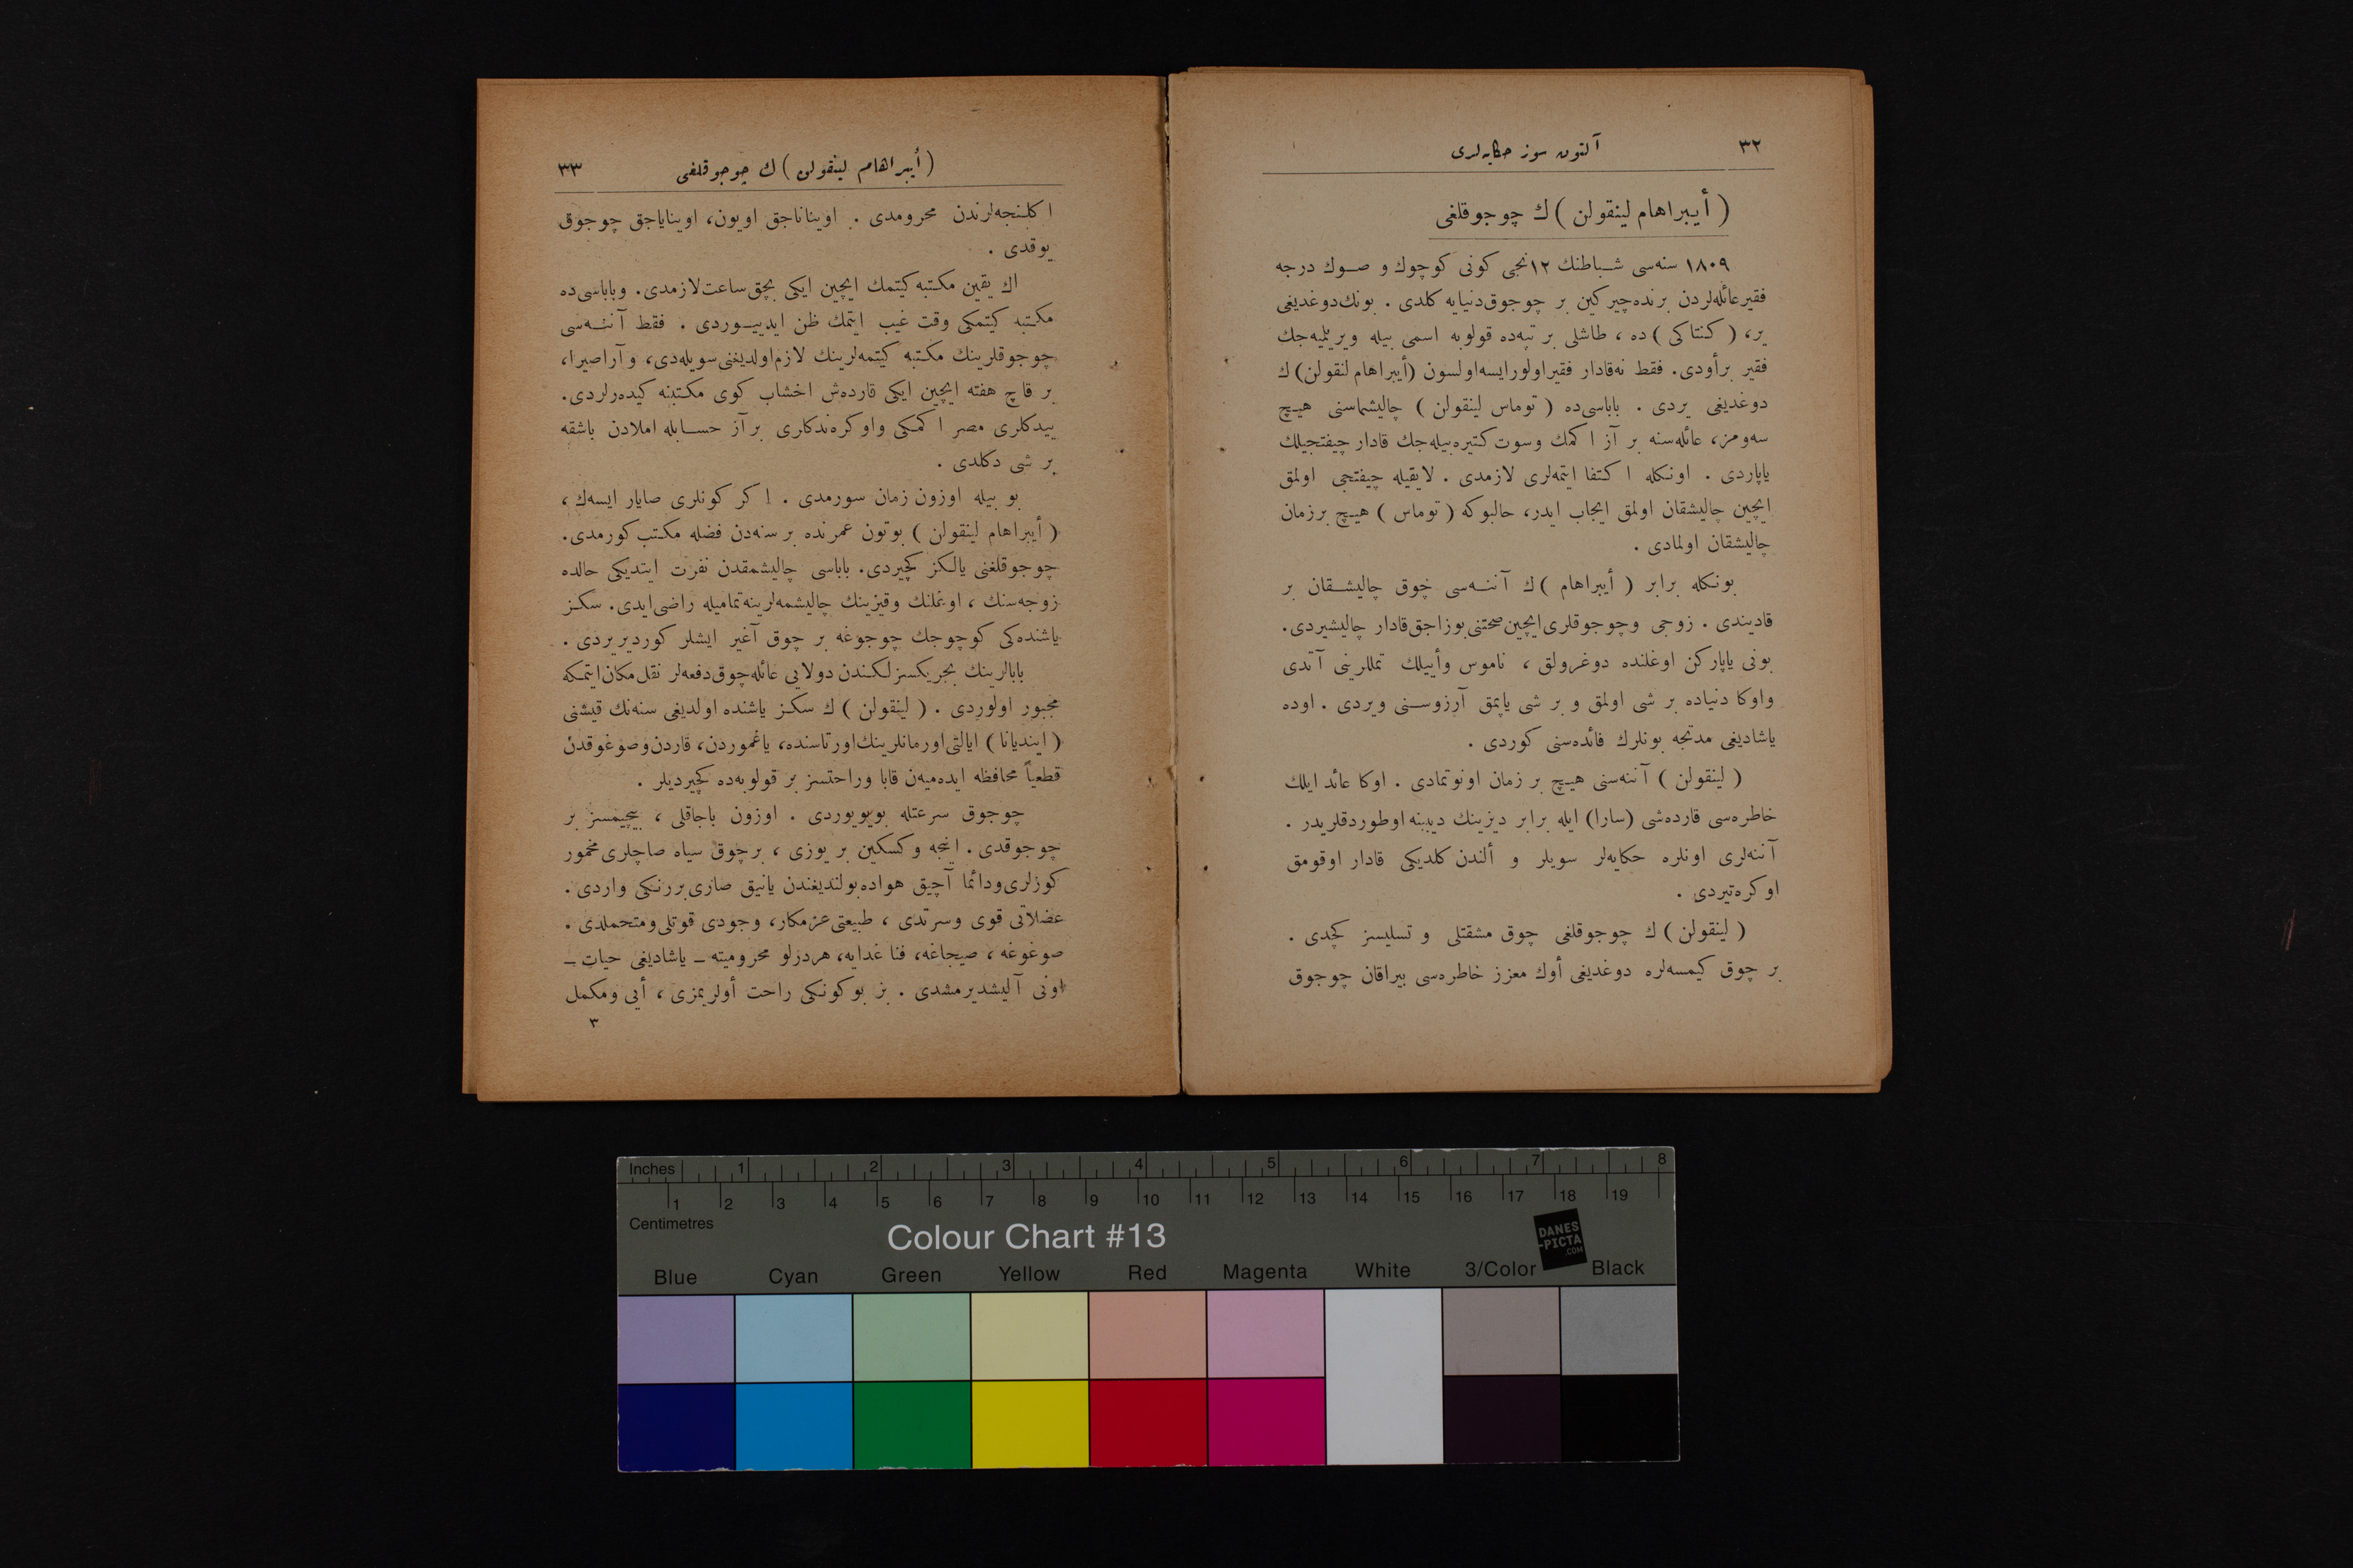 ٣٢
آلتون سوز حكايه‌لری
( أیبراهام لینقولن ) ك چوجوقلغی
١٨٠٩ سنه‌سی شباطنك ١٢نجی كونی كوچوك و صوك درجه
فقیر عائله‌لردن برنده چیركین بر چوجوق دنیایه كلدی . بونك دوغدیغی
یر، ( كنتاكی ) ده ، طاشلی بر تپه‌ده قولوبه اسمی بیله ویریلمیه‌جك
فقیر برأودی. فقط نه‌قادار فقیر اولورایسه‌اولسون (أیبراهام لنقولن) ك
دوغدیغی یردی . باباسی‌ده ( توماس لینقولن ) چالیشماسنی هیچ
سه‌ومز، عائله‌سنه بر آز ا كمك وسوت كتیره‌بیله‌جك قادار چیفتجیلك
یاپاردی . اونكله ا كتفا ایتمه‌لری لازمدی . لایقیله چیفتجی اولمق
ایچین چالیشقان اولمق ایجاب ایدر، حالبوكه ( توماس ) هیچ برزمان
چالیشقان اولمادی .
بونكله برابر ( أیبراهام ) ك آننه‌سی چوق چالیشقان بر
قادیندی . زوجی وچوجوقلری ایچین صحتنی بوزاجق قادار چالیشیردی.
بونی یاپاركن اوغلنده دوغرولق ، ناموس وأییلك تمللرینی آتدی
واوكا دنیاده بر شی اولمق و بر شی یاپمق آرزوسنی ویردی . اوده
یاشادیغی مدتجه بونلرك فائده‌سنی كوردی .
( لینقولن ) آننه‌سنی هیچ بر زمان اونوتمادی . اوكا عائد ایلك
خاطره‌سی قارده‌شی (سارا) ایله برابر دیزینك دیبنه اوطوردقلریدر .
آننه‌لری اونلره حكایه‌لر سویلر و ألندن كلدیكی قادار اوقومق
اوكره‌تیردی .
( لینقولن ) ك چوجوقلغی چوق مشقتلی و تسلیسز كچدی .
بر چوق كیمسه‌لره دوغدیغی أوك معزز خاطره‌سی بیراقان چوجوق
( أیبراهام لینقولن ) ك چوجوقلغی
٣٣
ا كلنجه‌لرندن محرومدی . اویناناجق اویون، اوینایاجق چوجوق
یوقدی .
اك یقین مكتبه كیتمك ایچین ایكی بچق ساعت لازمدی. وباباسی‌ده
مكتبه كیتمكی وقت غیب ایتمك ظن ایدییوردی . فقط آننه‌سی
چوجوقلرینك مكتبه كیتمه‌لرینك لازم‌اولدیغنی سویله‌دی، و آراصیرا،
بر قاچ هفته ایچین ایكی قارده‌ش اخشاب كوی مكتبنه كیده‌رلردی.
ییدكلری مصر ا كمكی واوكره‌ندكلری برآز حسابله املادن باشقه
بر شی دكلدی .
بو بیله اوزون زمان سورمدی . ا كر كونلری صایار ایسه‌ك ،
( أیبراهام لینقولن ) بوتون عمرنده بر سنه‌دن فضله مكتب كورمدی.
چوجوقلغنی یالكز كچیردی. باباسی چالیشمقدن نفرت ایتدیكی حالده
زوجه‌سنك ، اوغلنك وقیزینك چالیشمه‌لرینه تمامیله راضی‌ایدی. سكز
یاشنده‌كی كوچوجك چوجوغه بر چوق آغیر ایشلر كوردیریردی .
بابالرینك بجریكسزلكندن دولایی عائله‌چوق‌دفعه‌لر نقل مكان‌ایتمكه
مجبور اولوردی . ( لینقولن ) ك سكز یاشنده اولدیغی سنه‌نك قیشنی
( ایندیانا ) ایالتی‌اورمانلرینك‌اورتاسنده، یاغموردن، قاردن‌وصوغوقدن
قطعیاً محافظه ایده‌میه‌ن قابا وراحتسز بر قولوبه‌ده كچیردیلر .
چوجوق سرعتله بویویوردی . اوزون باجاقلی ، بیچیمسز بر
چوجوقدی . اینجه وكسكین بر یوزی ، برچوق سیاه صاچلری مخمور
كوزلری‌ودائما آچیق هواده بولندیغندن یانیق صاری بررنكی واردی .
عضلاتی قوی وسرتدی ، طبیعتی عزمكار، وجودی قوتلی‌ومتحملدی .
صوغوغه ، صیجاغه، فنا غدایه، هردرلو محرومیته ـ یاشادیغی حیات ـ
اونی آلیشدیرمشدی . بز بوكونكی راحت أولریمزی ، أیی ومكمل
٣
Inches 1 2 3 4 5 6 7 8
1 2 3 4 5 6 7 8 9 10 11 12 13 14 15 16 17 18 19
Centimetres
Colour Chart #13
DANES
-PICTA
.COM
Blue Cyan Green Yellow Red Magenta White 3/Color Black